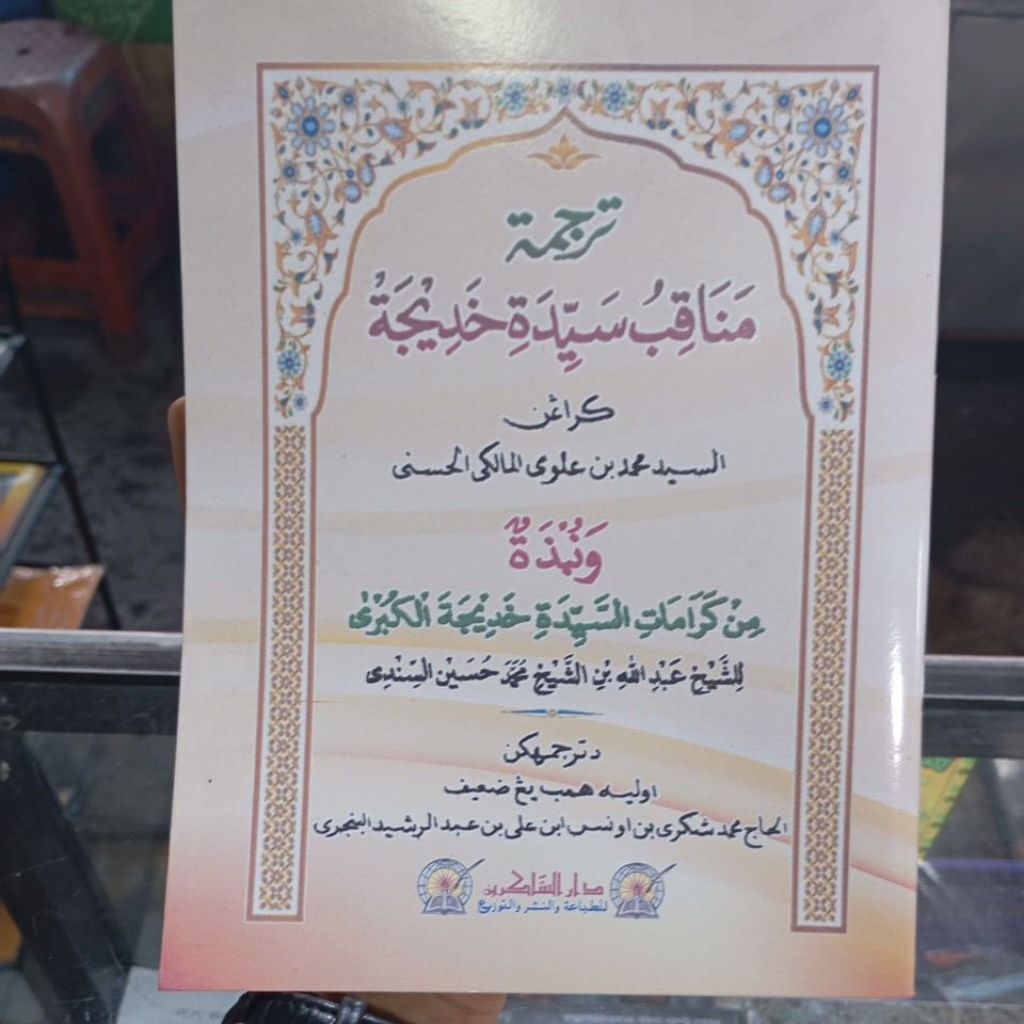 ترجمة
مَنَاقِبُ سَيِّدَةِ خَدِيْجَةْ
كراڠن
السيد محمد بن علوى المالكى الحسنى
وَنُبْذَةٌ
مِنْ كَرَامَاتِ السَّيِّدَةِ خَدِيْجَةَ الْكُبْرٰى
لِلشَّيْخِ عَبْدِ اللهِ بْنِ الشَّيْخِ مُحَمَّدْ حُسَيْن السِّنْدِى
دترجمهكن
اوليه همب يڠ ضعيف
الحاج محمد شكرى بن اونس ابن على بن عبد الرشيد البنجرى
دار الشاكرين
للطباعة والنشر والتوزيع